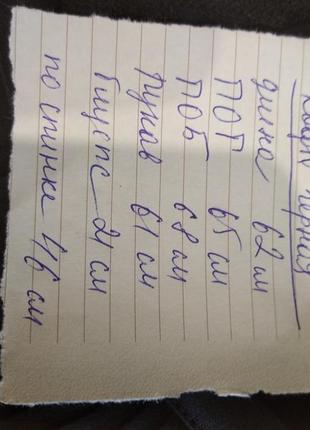 Кофта чёрная
длина 62 см
ПОГ 65 см
ПОБ 68 см
Рукав 61 см
Бицепс 21 см
по спинке 46 см